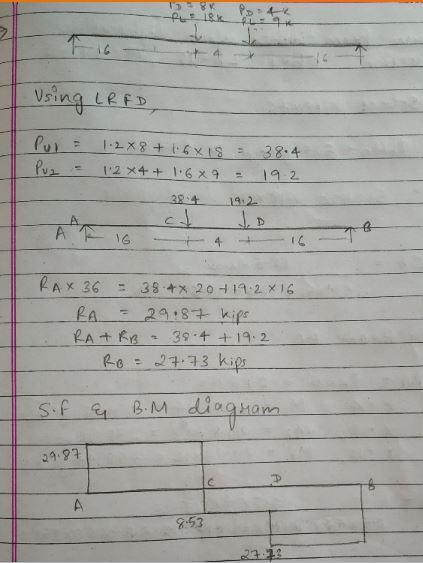 PD = 8k PD = 4k
PL = 18k PL = 9k
16 4 16
Using LRFD,
Pu1 = 1.2×8 + 1.6×18 = 38.4
Pu2 = 1.2×4 + 1.6×9 = 19.2
38.4 19.2
A A C D B
16 4 16
RA × 36 = 38.4 × 20 + 19.2 × 16
RA = 29.87 kips
RA + RB = 38.4 + 19.2
RB = 27.73 kips
S.F & B.M diagram
29.87
C D B
A
8.53
27.73